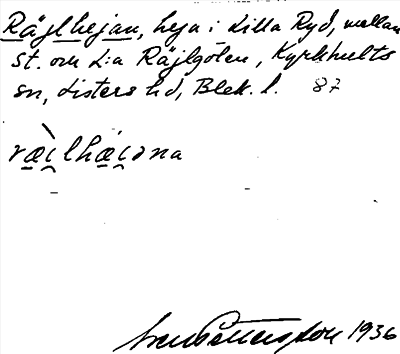 Räjlhejan, heja i Lilla Ryd, mellan
St. och L:a Räjlgölen, Kyrkhults
sn, Listers hd, Blek. l. 87
ræ̀i̯lhæi̯əna
Sven Pettersson 1936